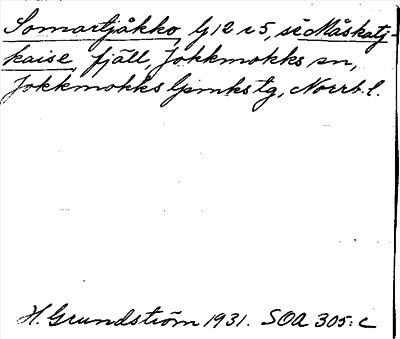 Somartjåkko, G12 c 5, se Måskatj-
kaise, fjäll, Jokkmokks sn,
Jokkmokks lpmks tg, Norrb. l.
H. Grundström 1931. SOA 305:c